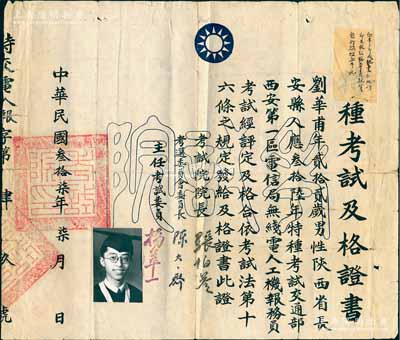 種考試及格證書
劉華甫年貳拾貳歲男性陝西省長
安縣人應叁拾陸年特種考試交通部
西安第一區電信局無綫電人工機報務員
考試經評定及格合依考試法第十
六條之規定發給及格證書此證
考試院院長 張伯苓
考選委員會委員長 陳大齊
主任考試委員 楊華一
中華民國叁拾柒年柒月 日
特交電人報字第肆 玖號